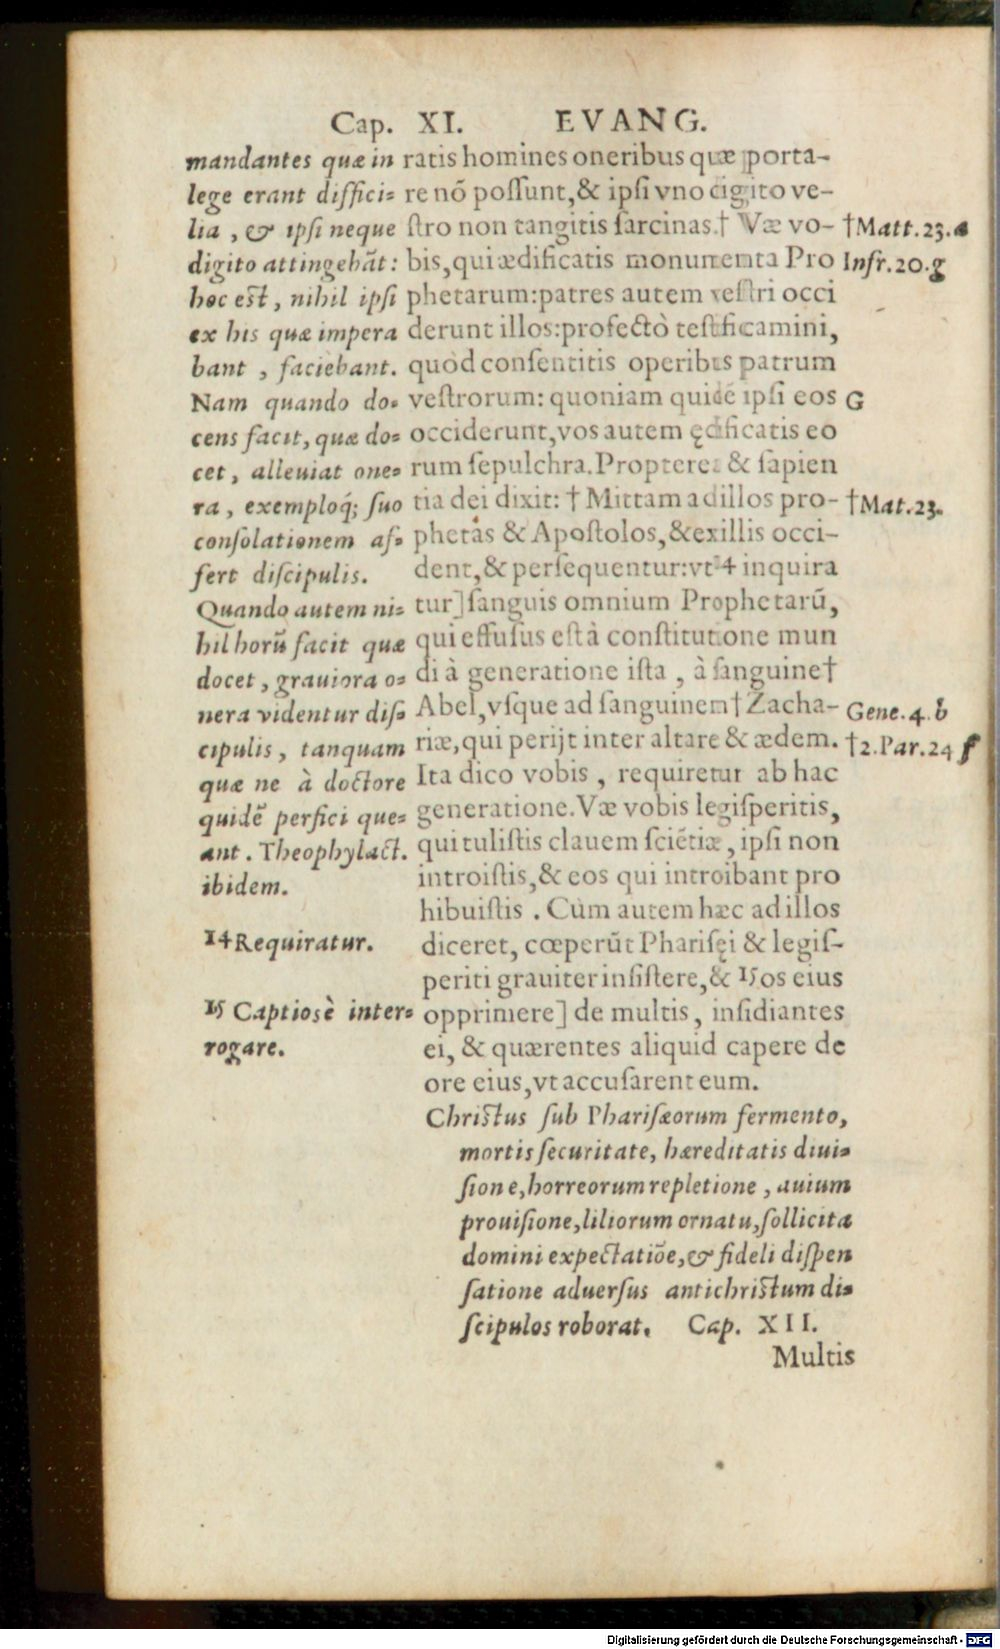 Cap. XI. EVANG.
mandantes quæ in
lege erant diffici=
lia, & ipsi neque
digito attingebāt:
hoc est, nihil ipsi
ex his quæ impera
bant, faciebant.
Nam quando do=
cens facit, quæ do=
cet, alleuiat one=
ra, exemploq́; suo
consolationem af=
fert discipulis.
Quando autem ni=
hil horū facit quæ
docet, grauiora o=
nera videntur dis=
cipulis, tanquam
quæ ne à doctore
quidē perfici que=
ant. Theophylact.
ibidem.
14 Requiratur.
15 Captiosè inter=
rogare.
ratis homines oneribus quæ porta-
re nō possunt, & ipsi vno digito ve-
stro non tangitis sarcinas.† Væ vo-
bis, qui ædificatis monumenta Pro
phetarum: patres autem vestri occi
derunt illos: profectò testificamini,
quòd consentitis operibus patrum
vestrorum: quoniam quidē ipsi eos
occiderunt, vos autem ędificatis eo
rum sepulchra. Propterea & sapien
tia dei dixit: † Mittam ad illos pro-
phetas & Apostolos, & ex illis occi-
dent, & persequentur: vt 14 inquira
tur] sanguis omnium Prophetarū,
qui effusus est à constitutione mun
di à generatione ista, à sanguine†
Abel, vsque ad sanguinem † Zacha-
riæ, qui perijt inter altare & ædem.
Ita dico vobis, requiretur ab hac
generatione. Væ vobis legisperitis,
qui tulistis clauem sciētiæ, ipsi non
introistis, & eos qui introibant pro
hibuistis. Cùm autem hæc ad illos
diceret, cœperūt Pharisęi & legis-
periti grauiter insistere, & 15 os eius
opprimere] de multis, insidiantes
ei, & quærentes aliquid capere de
ore eius, vt accusarent eum.
Christus sub Pharisæorum fermento,
mortis securitate, hæreditatis diui=
sione, horreorum repletione, auium
prouisione, liliorum ornatu, sollicita
domini expectatiōe, & fideli dispen
satione aduersus antichristum di=
scipulos roborat. Cap. XII.
Multis
†Matt.23.a
Infr.20.g
G
†Mat.23.
Gene.4.b
†2.Par.24 f
Digitalisierung gefördert durch die Deutsche Forschungsgemeinschaft - DFG